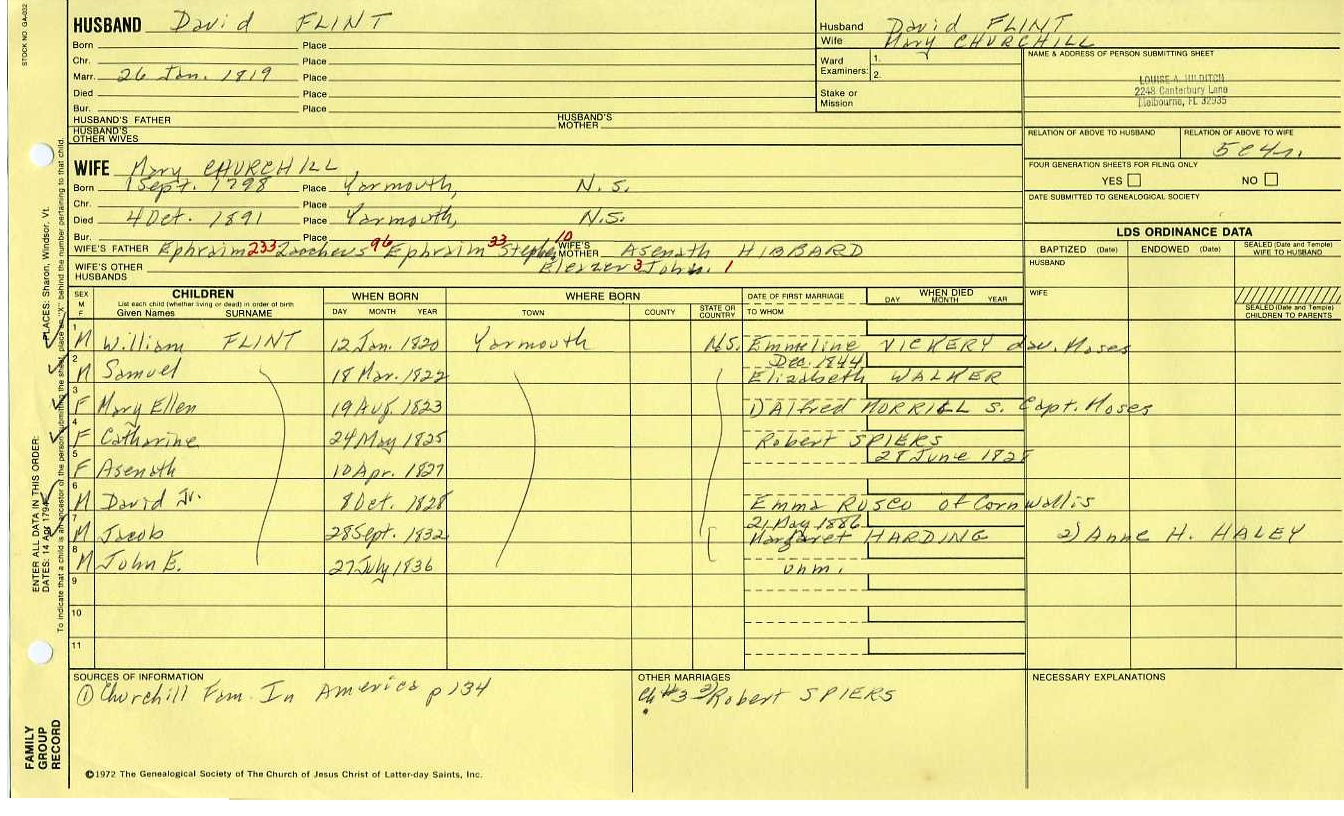 STOCK NO. GA-032
HUSBAND David FLINT
Born Place
Chr. Place
Marr. 26 Jan. 1819 Place
Died Place
Bur. Place
HUSBAND'S FATHER HUSBAND'S MOTHER
HUSBAND'S OTHER WIVES
Husband David FLINT
Wife Mary CHURCHILL
Ward Examiners: 1. 2.
Stake or Mission
NAME & ADDRESS OF PERSON SUBMITTING SHEET
LOUISE A. HILDITCH
2248 Canterbury Lane
Melbourne, FL 32935
RELATION OF ABOVE TO HUSBAND RELATION OF ABOVE TO WIFE
5C4r.
FOUR GENERATION SHEETS FOR FILING ONLY
YES NO
DATE SUBMITTED TO GENEALOGICAL SOCIETY
WIFE Mary CHURCHILL
Born 1 Sept. 1798 Place Yarmouth, N.S.
Chr. Place
Died 4 Oct. 1891 Place Yarmouth, N.S.
Bur. Place
WIFE'S FATHER Ephraim 233 Zacheus 96 Ephraim 33 Stephen 10 WIFE'S MOTHER Asenath HIBBARD
Eleazer 3 John. 1
WIFE'S OTHER HUSBANDS
LDS ORDINANCE DATA
BAPTIZED (Date) ENDOWED (Date) SEALED (Date and Temple) WIFE TO HUSBAND
HUSBAND
WIFE
SEALED (Date and Temple) CHILDREN TO PARENTS
SEX M F
CHILDREN
List each child (whether living or dead) in order of birth
Given Names SURNAME
WHEN BORN
DAY MONTH YEAR
WHERE BORN
TOWN COUNTY STATE OR COUNTRY
DATE OF FIRST MARRIAGE
TO WHOM
WHEN DIED
DAY MONTH YEAR
1 M William FLINT 12 Jan. 1820 Yarmouth N.S. Emmeline VICKERY dau. Moses
Dec. 1844
2 M Samuel 18 Mar. 1822 Elizabeth WALKER
3 F Mary Ellen 19 Aug. 1823 1) Alfred MORRILL s. Capt. Moses
4 F Catharine 24 May 1825 Robert SPIERS
28 June 1828
5 F Asenath 10 Apr. 1827
6 M David Jr. 8 Oct. 1828 Emma RUSCO of Cornwallis
21 May 1886
7 M Jacob 28 Sept. 1832 Margaret HARDING 2) Anne H. HALEY
8 M John E. 27 July 1836 unm.
9
10
11
SOURCES OF INFORMATION
① Churchill Fam. In America p 134
OTHER MARRIAGES
Ch #3 2) Robert SPIERS
NECESSARY EXPLANATIONS
©1972 The Genealogical Society of The Church of Jesus Christ of Latter-day Saints, Inc.
FAMILY GROUP RECORD
ENTER ALL DATA IN THIS ORDER:
DATES: 14 Apr 1794
PLACES: Sharon, Windsor, Vt.